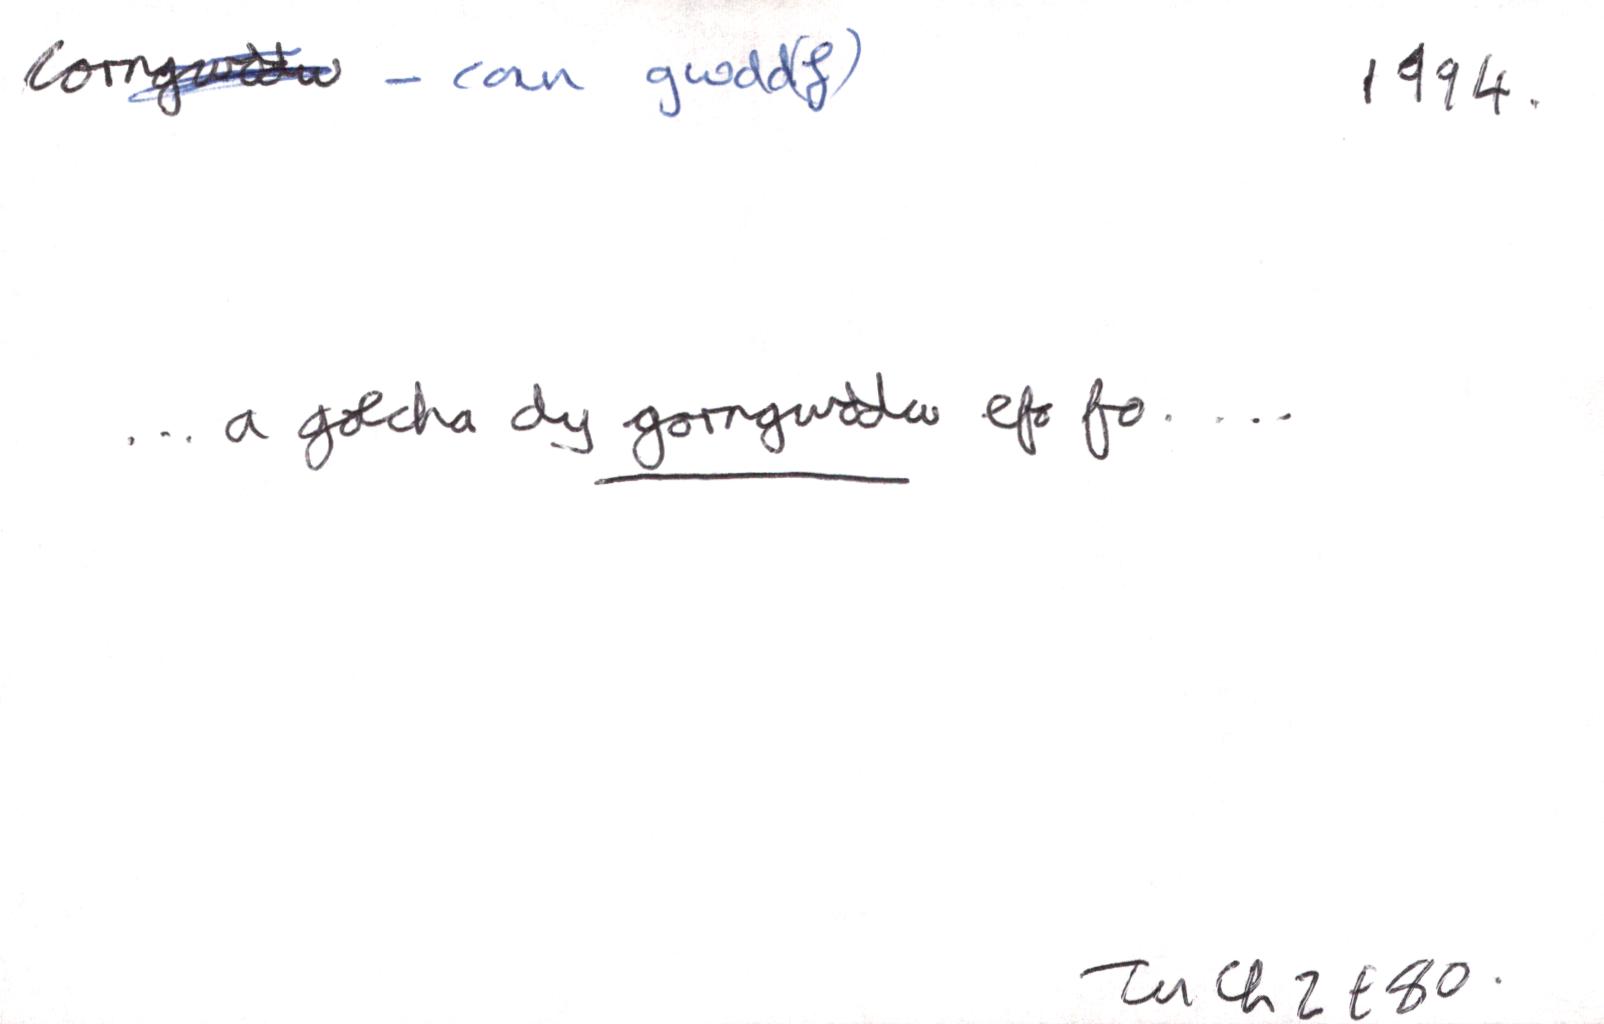 Corngwddw - corn gwddd(f) 1994.
... a golcha dy gorngwddw efo fo.....
Tu Ch 2 t 80.